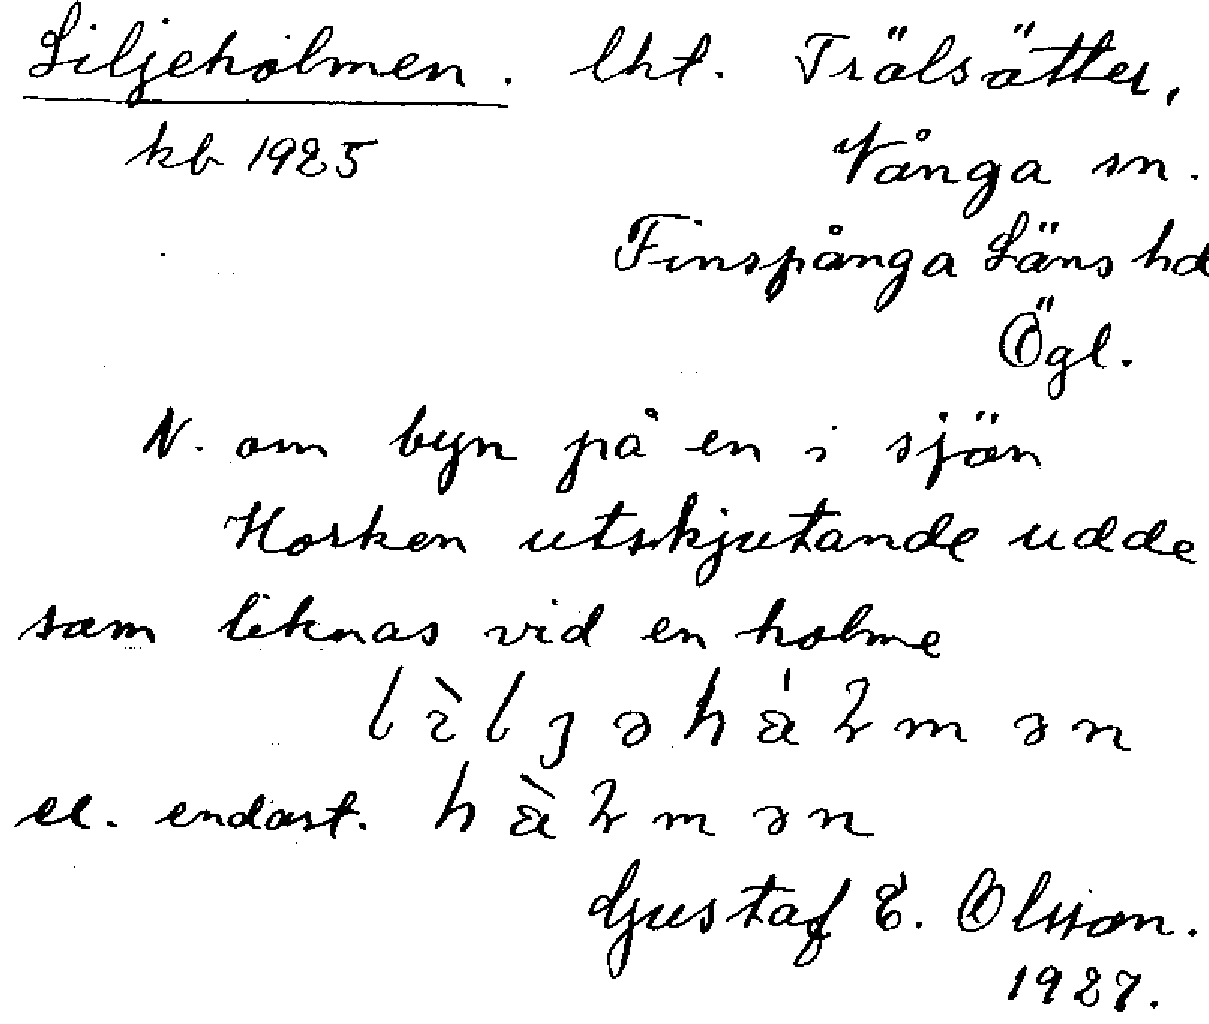 Liljeholmen. lht. Trälsätter,
kb 1925 Vånga sn.
Finspånga Läns hd
Ögl.
N. om byn på en i sjön
Horken utskjutande udde
som liknas vid en holme
el. endast.
Gustaf E. Olsson.
1927.